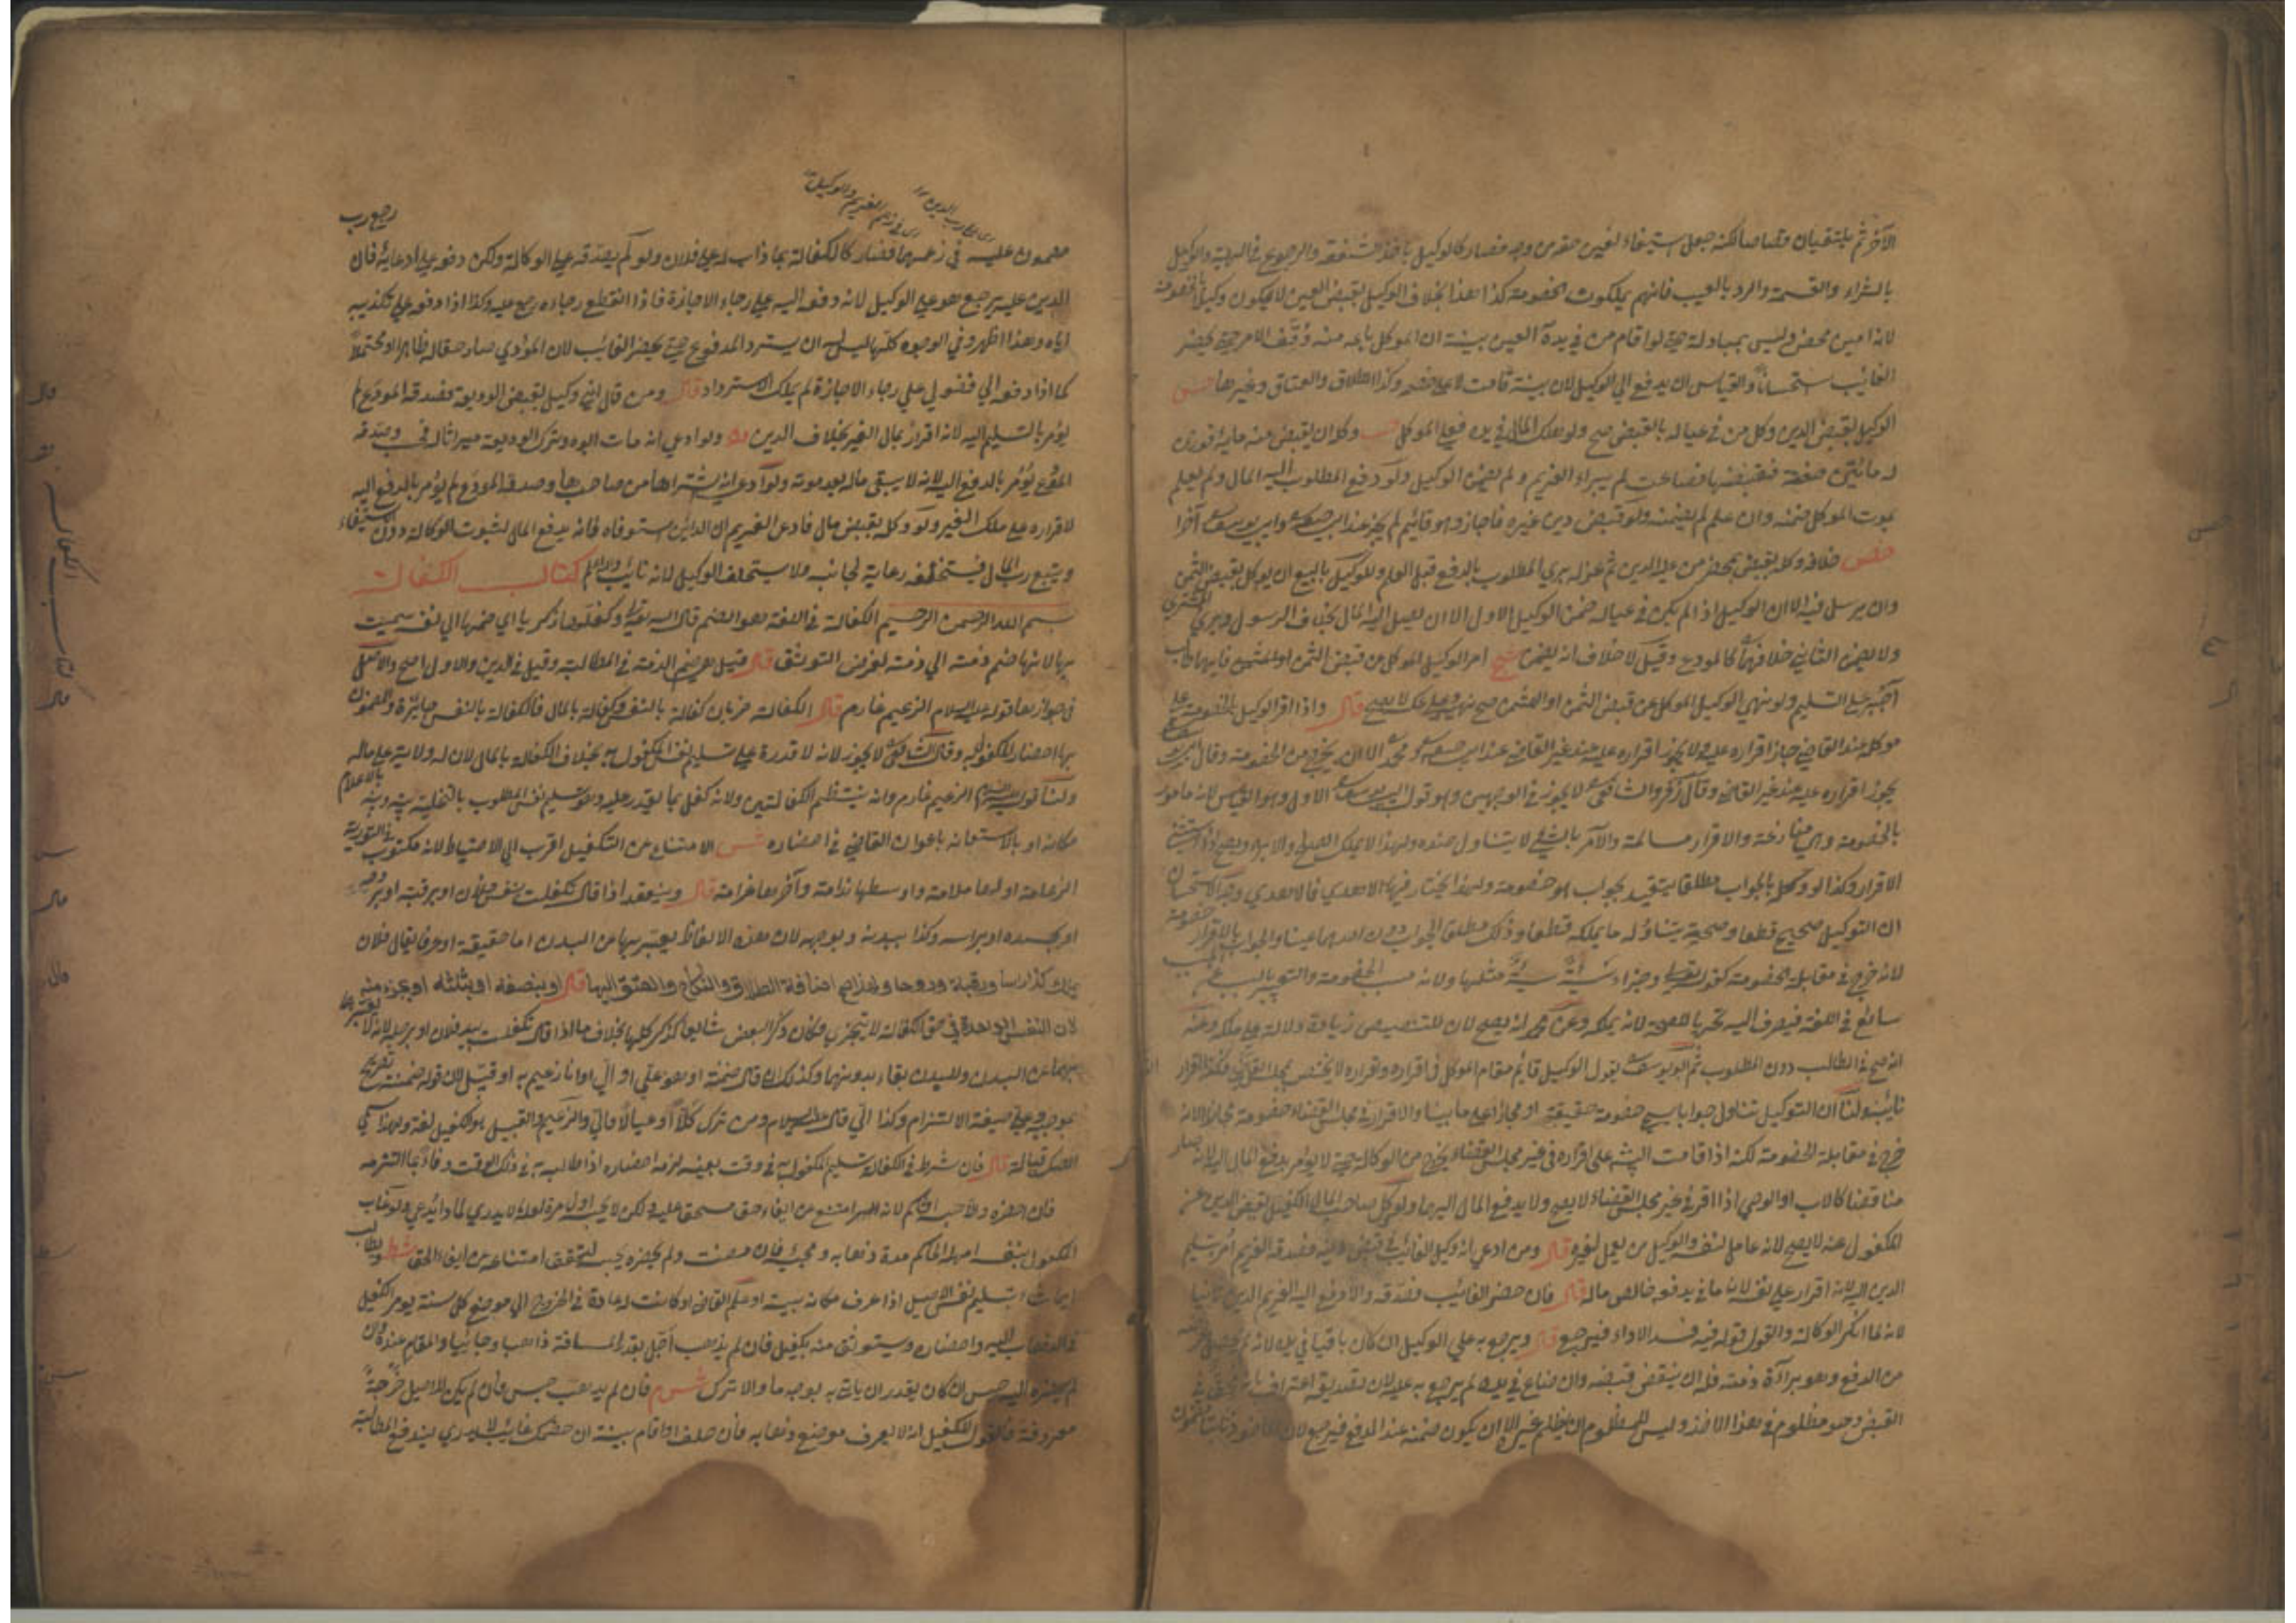 الآخر ثم يلتقيان قصاصا لكنه جعل استيفاء لعين حقه من وجه فصار كالوكيل باخذ الشفعة والرجوع في الهبة والوكيل
بالشراء والقسمة والرد بالعيب فانهم يملكون الخصومة كذا هذا بخلاف الوكيل بقبض العين لا يكون وكيلا بالخصومة
لانه امين محض وليس بمبادلة حتى لو اقام من في يده العين بينة ان الموكل باعه منه وُقّف الامر حتى يحضر
الغائب استحسانا والقياس ان يدفع الي الوكيل لان بينة قامت لا على خصم وكذا الطلاق والعتاق وغيرها
الوكيل بقبض الدين وكل من في عياله بالقبض صح ولو هلك المال في يده فعلى الموكل وكله ان يقبض منه ماية فوزن
له مائتين فقبضها فضاعت لم يبراء الغريم ولم يضمن الوكيل ولو دفع المطلوب اليه المال ولم يعلم
بموت الموكل ضمنه وان علم لم يضمنه ولو قبض دين غيره فاجاز وهو قائم لم يجز عند
خلافه وكله بقبض بمحضر من عليه الدين ثم عزله بري المطلوب بالدفع قبل العلم وللوكيل بالبيع ان يوكل بقبض الثمن
وان يرسل فيه الا ان الوكيل اذا لم يكن في عياله ضمن الوكيل الاول الا ان يصل اليه المال بخلاف الرسول ويبري المشتري
ولا يضمن الثاني خلافهما كالمودع وقيل لا خلاف انه يضمن امر الوكيل الموكل من قبض الثمن او المثمن فايهما طالب
اجبر على التسليم ولو نهى الوكيل الموكل عن قبض الثمن او المثمن صح نهيه وعلى عكسه لا يصح قال واذا اقر الوكيل بالخصومة على
موكله عند القاضي جاز اقراره عليه ولا يجوز اقراره عليه عند غير القاضي عند ابي حنيفة ومحمد الا انه يخرج من الخصومة وقال ابو يوسف
يجوز اقراره عليه عند غير القاضي وقال زفر والشافعي لا يجوز في الوجهين وهو قول ابي يوسف الاول وهو القياس لانه مامور
بالخصومة وهي منازعة والاقرار مسالمة والامر بالشيء لا يتناول ضده ولهذا لا يملك الصلح والابراء ويصح اذا استثنى
الاقرار وكذا لو وكله بالجواب مطلقا يتقيد بجواب هو خصومة ولهذا يختار فيها الاهدي فالاهدي وجه الاستحسان
ان التوكيل صحيح قطعا وصحته بتناوله ما يملكه قطعا وذلك مطلق الجواب دون احدهما عينا والجواب بالاقرار خصومة
لانه خرج في مقابلة الخصومة كقوله تعالى وجزاء سيئة سيئة مثلها ولانه سبب الخصومة والتعبير بالسبب
سائغ في اللغة فيصرف اليه تحريا للصحة لانه يملكه وعن محمد انه يصح لان للتنصيص زيادة دلالة على ملكه وعنه
انه صح في الطالب دون المطلوب ثم ابو يوسف يقول الوكيل قائم مقام الموكل في اقراره واقراره لا يختص بمجلس القاضي فكذا اقرار
نائبه ولنا ان التوكيل تناول جوابا يسمى خصومة حقيقة او مجازا على ما بينا والاقرار في مجلس القضاء خصومة مجازا لانه
خرج في مقابلة الخصومة لكنه اذا قامت البينة على اقراره في غير مجلس القضاء يخرج من الوكالة حتى لا يؤمر بدفع المال اليه لانه صار
مناقضا كالاب او الوصي اذا اقر في غير مجلس القضاء لا يصح ولا يدفع المال اليهما ولو وكل صاحب المال الكفيل بقبض الدين عن
المكفول عنه لا يصح لانه عامل لنفسه والوكيل من يعمل لغيره قال ومن ادعى انه وكيل الغائب في قبض دينه فصدقه الغريم أمر بتسليم
الدين اليه لانه اقرار على نفسه لان ما يدفعه خالص ماله قال فان حضر الغائب فصدقه والا دفع اليه الغريم الدين ثانيا
لانه لما انكر الوكالة والقول قوله فيه فسد الاداء فيرجع قال ويرجع به على الوكيل ان كان باقيا في يده لانه لم يحصل غرضه
من الدفع وهو براءة ذمته فله ان ينقض قبضه وان ضاع في يده لم يرجع به عليه لان بتصديقه اعترف بانه محق في
القبض وهو مظلوم في هذا الاخذ وليس للمظلوم ان يظلم غيره الا ان يكون ضمنه عند الدفع فيرجع لان الماخوذ ثانيا مضمون
رجع رب
مضمون عليه في زعمهما فصار كالكفالة بما ذاب له على فلان ولو لم يصدقه على الوكالة ولكن دفعه على ادعايه فان
الدين عليه يرجع هو على الوكيل لانه دفعه اليه على رجاء الاجازة فاذا انقطع رجاءه رجع عليه وكذا اذا دفعه على تكذيبه
اياه وهذا اظهر وفي الوجوه كلها ليس له ان يسترد المدفوع حتى يحضر الغائب لان المؤدي صار حقا له ظاهرا او محتملا
كما اذا دفعه الي فضولي على رجاء الاجازة لم يملك الاسترداد قال ومن قال اني وكيل بقبض الوديعة فصدقه المودع لم
يؤمر بالتسليم اليه لانه اقرار بمال الغير بخلاف الدين ولو ادعى انه مات ابوه وترك الوديعة ميراثا له وصدقه
المودع يؤمر بالدفع اليه لانه لا يبقى ماله بعد موته ولو ادعى انه اشتراها من صاحبها وصدقه المودع لم يؤمر بالدفع اليه
لاقراره على ملك الغير ولو وكله بقبض مال فادعى الغريم ان الدائن استوفاه فانه يدفع المال لثبوت الوكالة دون الاستيفاء
ويتبع رب المال فيستحلفه رعاية لجانبه ولا يستحلف الوكيل لانه نائب والله اعلم كتاب الكفالة
بسم الله الرحمن الرحيم الكفالة في اللغة هو الضم قال الله تعالى وكفلها زكريا اي ضمها الي نفسه سميت
بها لانها ضم ذمة الي ذمة لغرض التوثق قال قيل هو ضم الذمة في المطالبة وقيل في الدين والاول اصح والاصل
في جوازها قوله عليه السلام الزعيم غارم قال الكفالة ضربان كفالة بالنفس وكفالة بالمال فالكفالة بالنفس جائزة والمضمون
بها احضار المكفول به وقال الشافعي لا يجوز لانه لا قدرة على تسليم نفس المكفول به بخلاف الكفالة بالمال لان له ولاية على ماله
ولنا قوله عليه السلام الزعيم غارم وانه ينتظم الكفالتين ولانه كفل بما يقدر عليه وهو تسليم نفس المطلوب بالتخلية بينه وبينه بالاعلام
مكانه او بالاستعانة باعوان القاضي في احضاره الامتناع عن التكفيل اقرب الي الاحتياط لانه مكتوب في التورية
الزعامة اولها ملامة واوسطها ندامة وآخرها غرامة قال وينعقد اذا قال تكفلت بنفس فلان او برقبته او بروحه
او بجسده او براسه وكذا ببدنه وبوجهه لان هذه الالفاظ يعبر بها عن البدن اما حقيقة او عرفا يقال فلان
يملك كذا راسا ورقبة وروحا ولهذا صح اضافة الطلاق والنكاح والعتق اليها قال او بنصفه او بثلثه او بجزء منه
لان النفس الواحدة في حق الكفالة لا يتجزى فكان ذكر البعض شائعا كذكر كلها بخلاف ما اذا قال تكفلت بيد فلان او برجله لانه لا يعبر
بهما عن البدن وللبدن بقاء بدونهما وكذلك ان قال ضمنته او هو علي او الي او انا زعيم به او قبيل لان قوله ضمنت تصريح
بموجبه وعلي صيغة الالتزام وكذا الي قال عليه السلام ومن ترك كلا او عيالا فالي والزعيم والقبيل هو الكفيل لغة ولهذا سمي
الصك قبالة قال فان شرط في الكفالة تسليم المكفول به في وقت بعينه لزمه احضاره اذا طالبه به في ذلك الوقت وفاء بما التزمه
فان احضره والا حبسه الحاكم لانه امتنع من ايفاء حق مستحق عليه ولكن لا يحبسه اول مرة لعله لا يدري لما ذا يدعى ولو غاب
المكفول بنفسه امهله الحاكم مدة ذهابه ومجيئه فان مضت ولم يحضره يحبسه لتحقق امتناعه من ايفاء الحق
تسليم نفس الاصيل اذا عرف مكانه ببينة او علم القاضي او كانت له عادة في الخروج الي موضع كل سنة يومر الكفيل
بالذهاب اليه واحضاره ويستوثق منه بكفيل فان لم يذهب أجل بقدر المسافة ذاهبا وجائيا والمقام عنده فان
لم يحضره اليه حبس ان كان يقدر ان ياتي به بوجه ما والا ترك فان لم يذهب حبس وان لم يكن للاصيل خرجة
معروفة فالقول للكفيل انه لا يعرف موضع ذهابه فان حلف او اقام بينة ان خصمك غائب لا يدري يندفع المطالبة
كتاب الكفالة